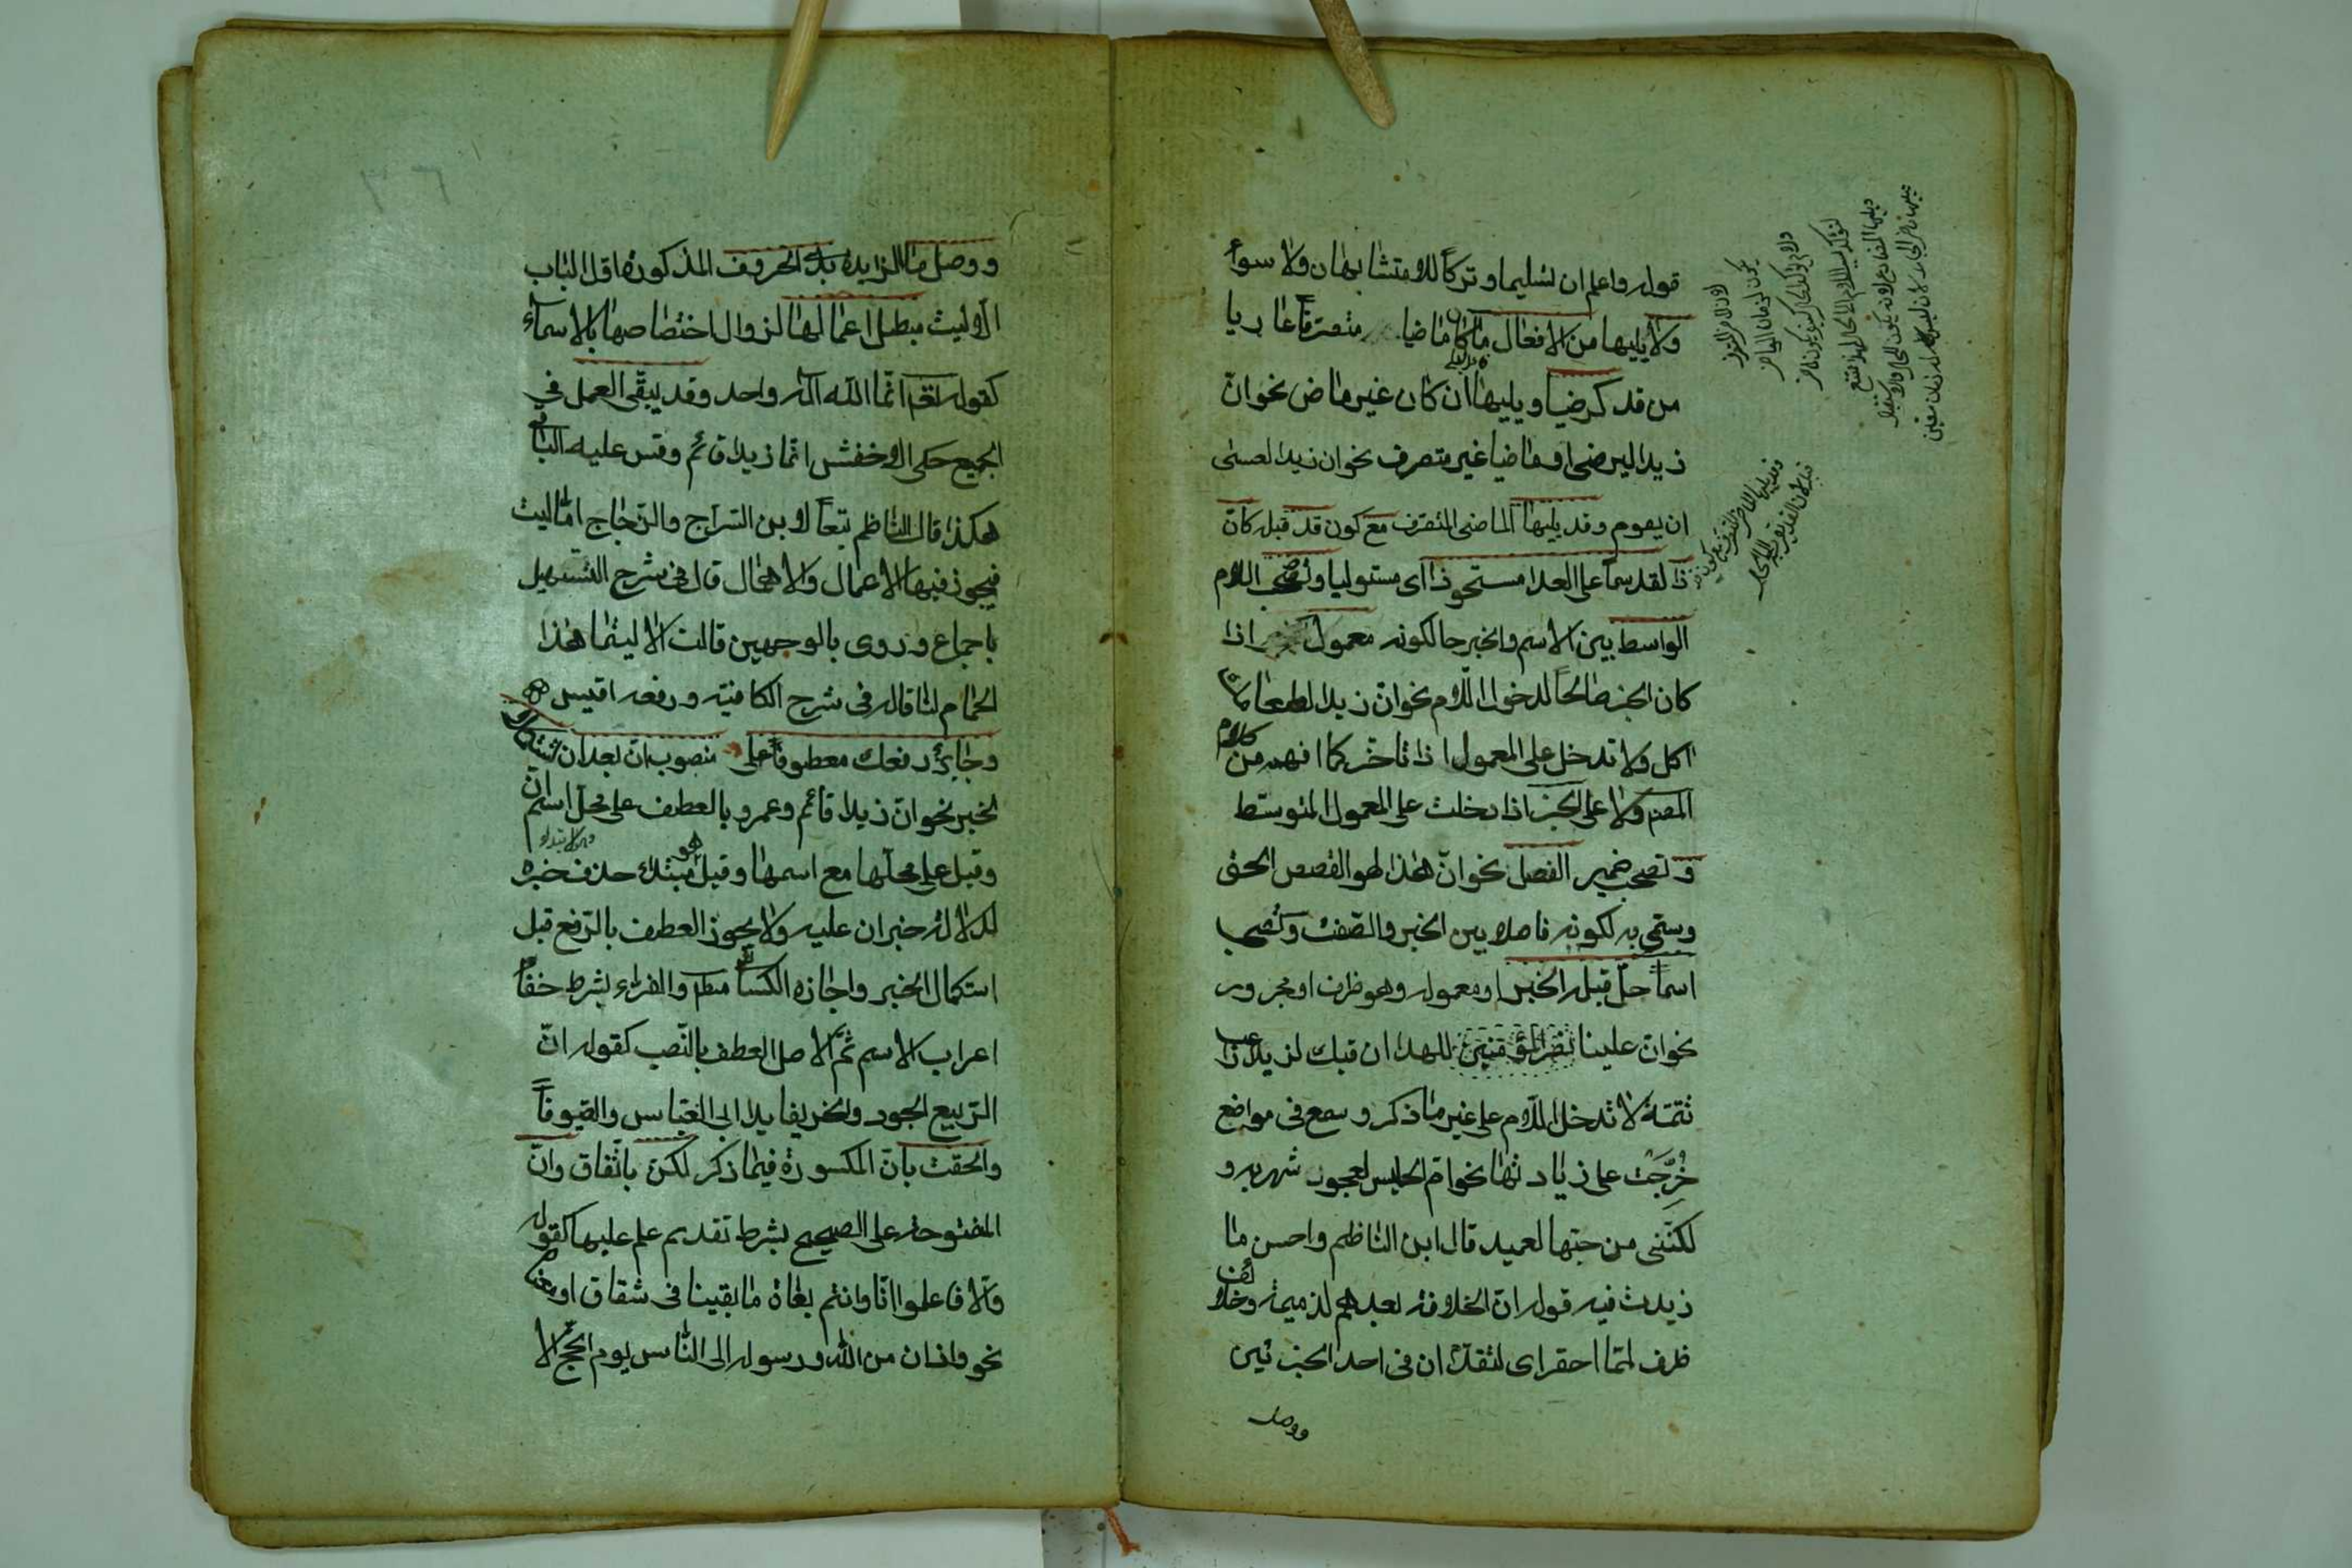 قوله واعلم ان تسليما وتركا للا متشابهان ولا سواء
ولا يليها من الافعال ما كان ماضيا متصرفا عاريا
من قد كرضيا ويليها ان كان غير ماض نحو ان
زيدا ليرضى او ماضيا غير متصرف نحو ان زيدا لعسى
ان يقوم وقد يليها الماضى المتصرف مع كون قد قبله كان
ذا لقد سما على العدا مستحوذا اى مستوليا وتصحب اللام
الواسط بين الاسم والخبر حالكونه معمول الخبر اذا
كان الخبر صالحا لدخول اللام نحو ان زيدا لطعامك
اكل ولا تدخل على المعمول اذا تاخر كما افهمه كلام
المصنف ولا على الخبر اذا دخلت على المعمول المتوسط
وتصحب ضمير الفصل نحو ان هذا لهو القصص الحق
وسمى به لكونه فاصلا بين الخبر والصفة وتصحب
اسما حل قبله الخبر او معموله وهو ظرف او مجرور
نحو ان علينا للهدا ان فيك لزيدا راغب
تتمة لا تدخل اللام على غير ما ذكر وسمع فى مواضع
خرجت على زيادتها نحو ام الحليس لعجوز شهربه و
لكننى من حبها لعميد قال ابن الناظم واحسن ما
زيدت فيه قوله ان الخلافة بعدهم لذميمة وخلائف
ظرف لمما احقر اى لتقدم ان فى احد الجزئين
ووصل
ووصل ما الزايدة بذى الحروف المذكورة اول الباب
الا ليت مبطل اعمالها لزوال اختصاصها بالاسماء
كقوله تعم انما الله اله واحد وقد يبقى العمل في
الجميع حكى الاخفش انما زيدا قائم وقس عليه الباقى
هكذا قال الناظم تبعا لابن السراج والزجاج اما ليت
فيجوز فيها الاعمال والاهمال قال فى شرح التسهيل
باجماع وروى بالوجهين قالت الا ليتما هذا
الحمام لنا قاله فى شرح الكافية ورفعه اقيس
وجائز رفعك معطوفا على منصوب ان بعد ان تستكملا
الخبر نحو ان زيدا قائم وعمرو بالعطف على محل اسم ان
وقيل على محلها مع اسمها وقيل هو مبتدء حذف خبره
لدلالة خبر ان عليه ولا يجوز العطف بالرفع قبل
استكمال الخبر واجازه الكسائى مطلقا والفراء بشرط خفاء
اعراب الاسم ثم الاصل العطف بالنصب كقوله ان
الربيع الجود والخريفا يدا ابى العباس والصيوفا
والحقت بان المكسورة فيما ذكر لكن باتفاق وان
المفتوحة على الصحيح بشرط تقديم علم عليها كقوله
والا فاعلموا انا وانتم بغاة ما بقينا فى شقاق او معناه
نحو واذان من الله ورسوله الى الناس يوم الحج الا